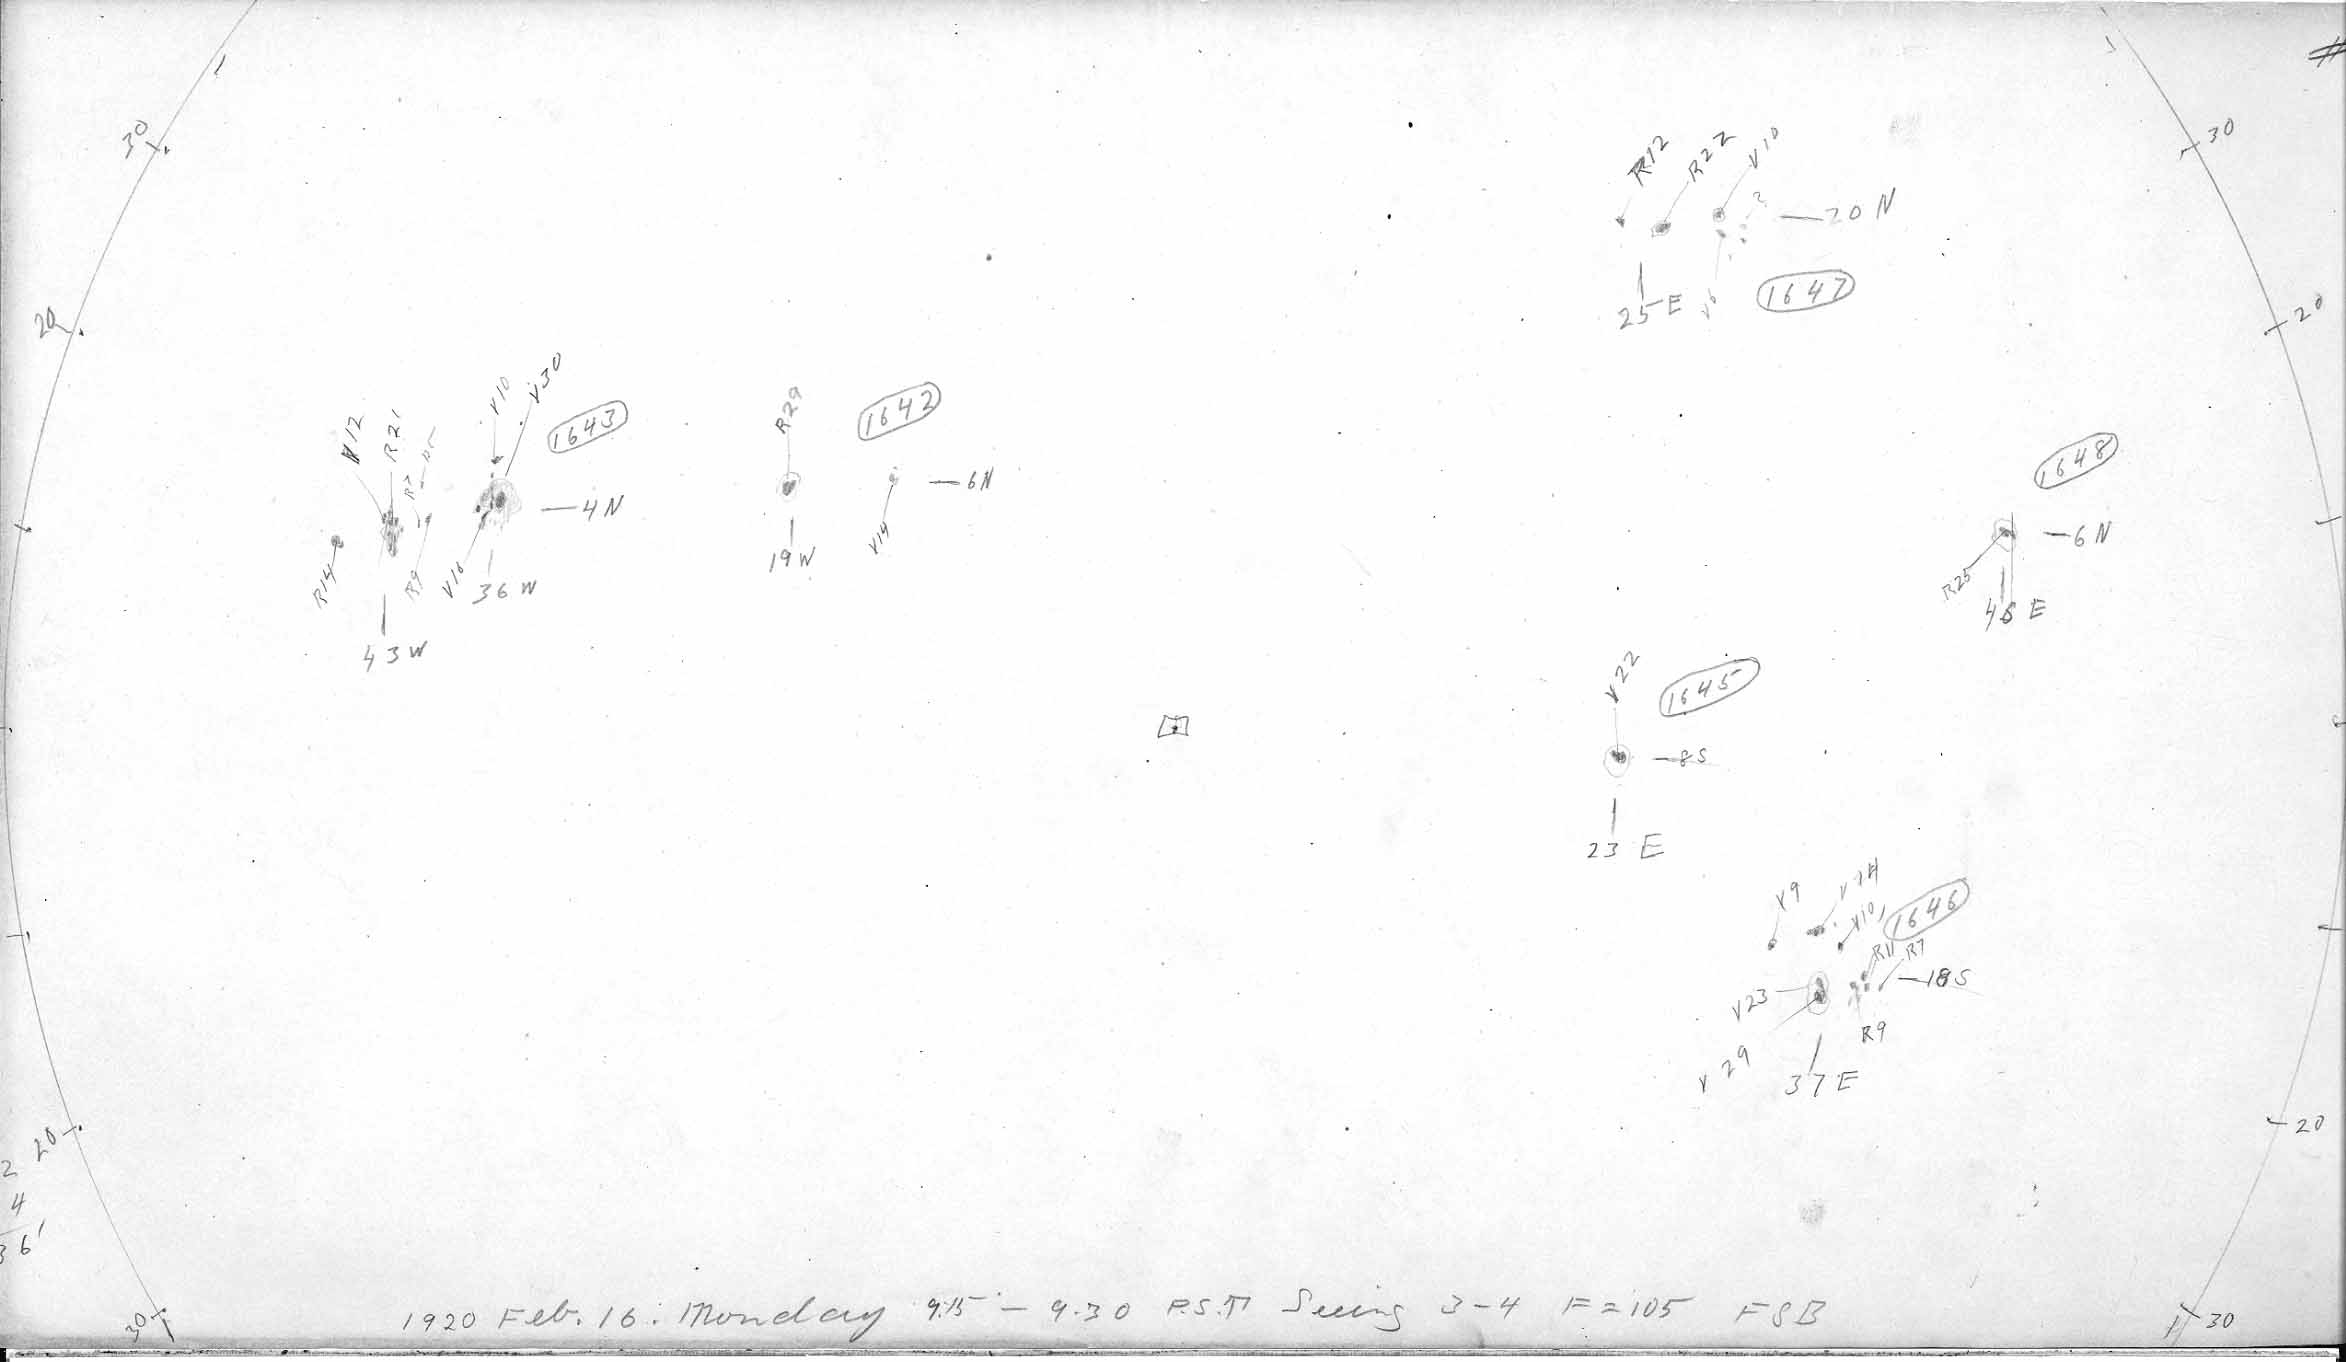 30
30
20
20
R12
R22
V10
3
20 N
25 E
V6
1647
V12
R21
V10
V30
1643
R7
4N
R14
R9
V16
36 W
43 W
R29
1642
6N
V14
19 W
1648
6 N
R25
E
V22
1645
8S
23 E
V9
V10
1646
R11
R7
V23
18S
R9
V 29
37 E
20
2
4
36'
20
30
30
1920 Feb. 16. Monday 9.15 - 9.30 P.S.T Seeing 3-4 F=105 FSB